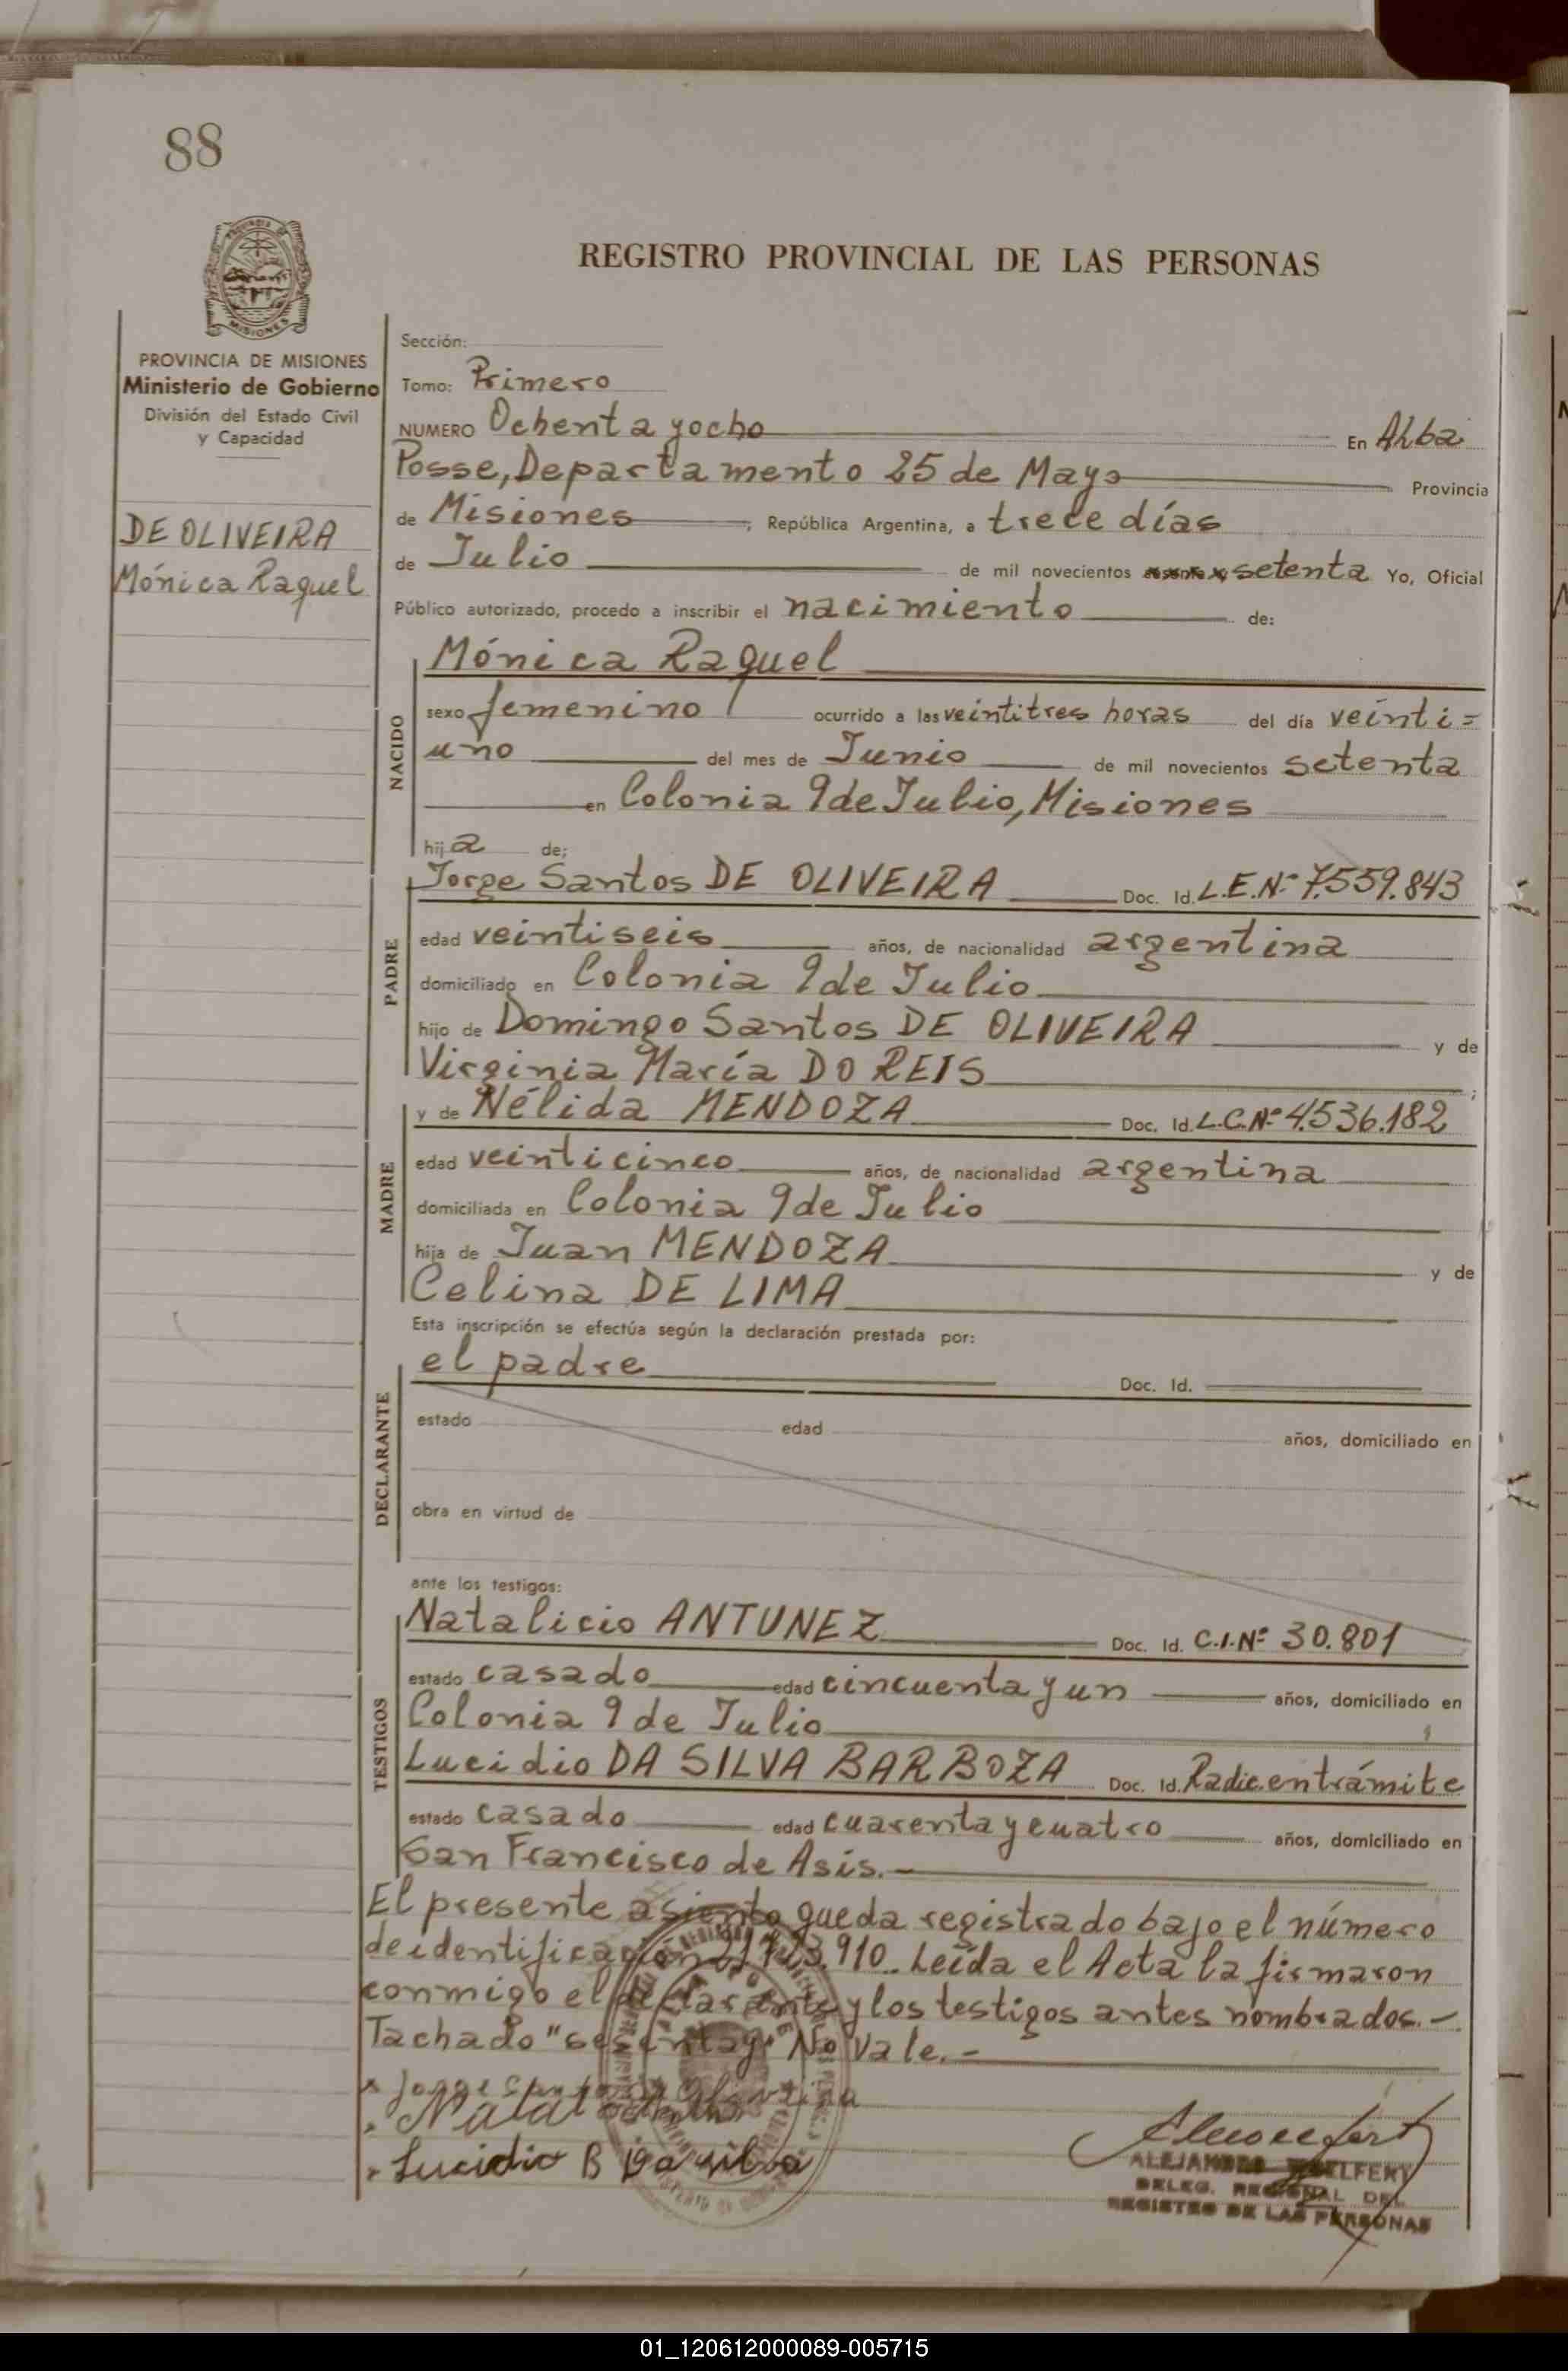 88
REGISTRO PROVINCIAL DE LAS PERSONAS
PROVINCIA DE
MISIONES
PROVINCIA DE MISIONES
Ministerio de Gobierno
División del Estado Civil
y Capacidad
DE OLIVEIRA
Mónica Raquel
Sección:
Tomo: Primero
NUMERO Ochenta y ocho En Alba
Posse, Departamento 25 de Mayo Provincia
de Misiones, República Argentina, a trece días
de Julio de mil novecientos setenta Yo, Oficial
Público autorizado, procedo a inscribir el nacimiento de:
NACIDO
Mónica Raquel
sexo femenino ocurrido a las veintitres horas del día veinti=
uno del mes de Junio de mil novecientos setenta
en Colonia 9 de Julio, Misiones
hija de;
PADRE
Jorge Santos DE OLIVEIRA Doc. Id. L.E.Nº 7.559.843
edad veintiseis años, de nacionalidad argentina
domiciliado en Colonia 9 de Julio
hijo de Domingo Santos DE OLIVEIRA y de
Virginia María DO REIS ;
MADRE
y de Nélida MENDOZA Doc. Id. L.C.Nº 4.536.182
edad veinticinco años, de nacionalidad argentina
domiciliada en Colonia 9 de Julio
hija de Juan MENDOZA y de
Celina DE LIMA
Esta inscripción se efectúa según la declaración prestada por:
DECLARANTE
el padre Doc. Id.
estado edad años, domiciliado en
obra en virtud de
ante los testigos:
TESTIGOS
Natalicio ANTUNEZ Doc. Id. C.I.Nº 30.801
estado casado edad cincuenta y un años, domiciliado en
Colonia 9 de Julio ;
Lucidio DA SILVA BARBOZA Doc. Id. Radic. en trámite
estado casado edad cuarenta y cuatro años, domiciliado en
San Francisco de Asís.-
El presente asiento queda registrado bajo el número
de identificación 910.- Leída el Acta la firmaron
conmigo el declarante y los testigos antes nombrados.-
Tachado "sesenta y" No Vale.-
Lucidio B Da silva
ALEJANDRO
DELEG. REGIONAL DEL
REGISTRO DE LAS PERSONAS
01_120612000089-005715